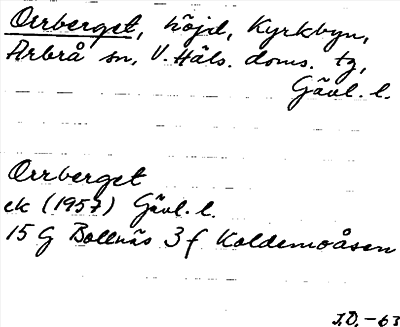 Orrberget, höjd, Kyrkbyn,
Arbrå sn, V. Häls. doms. tg,
Gävl. l.
Orrberget
ek (1957) Gävl. l.
15 G Bollnäs 3 f Koldemoåsen
J.Ö. -63